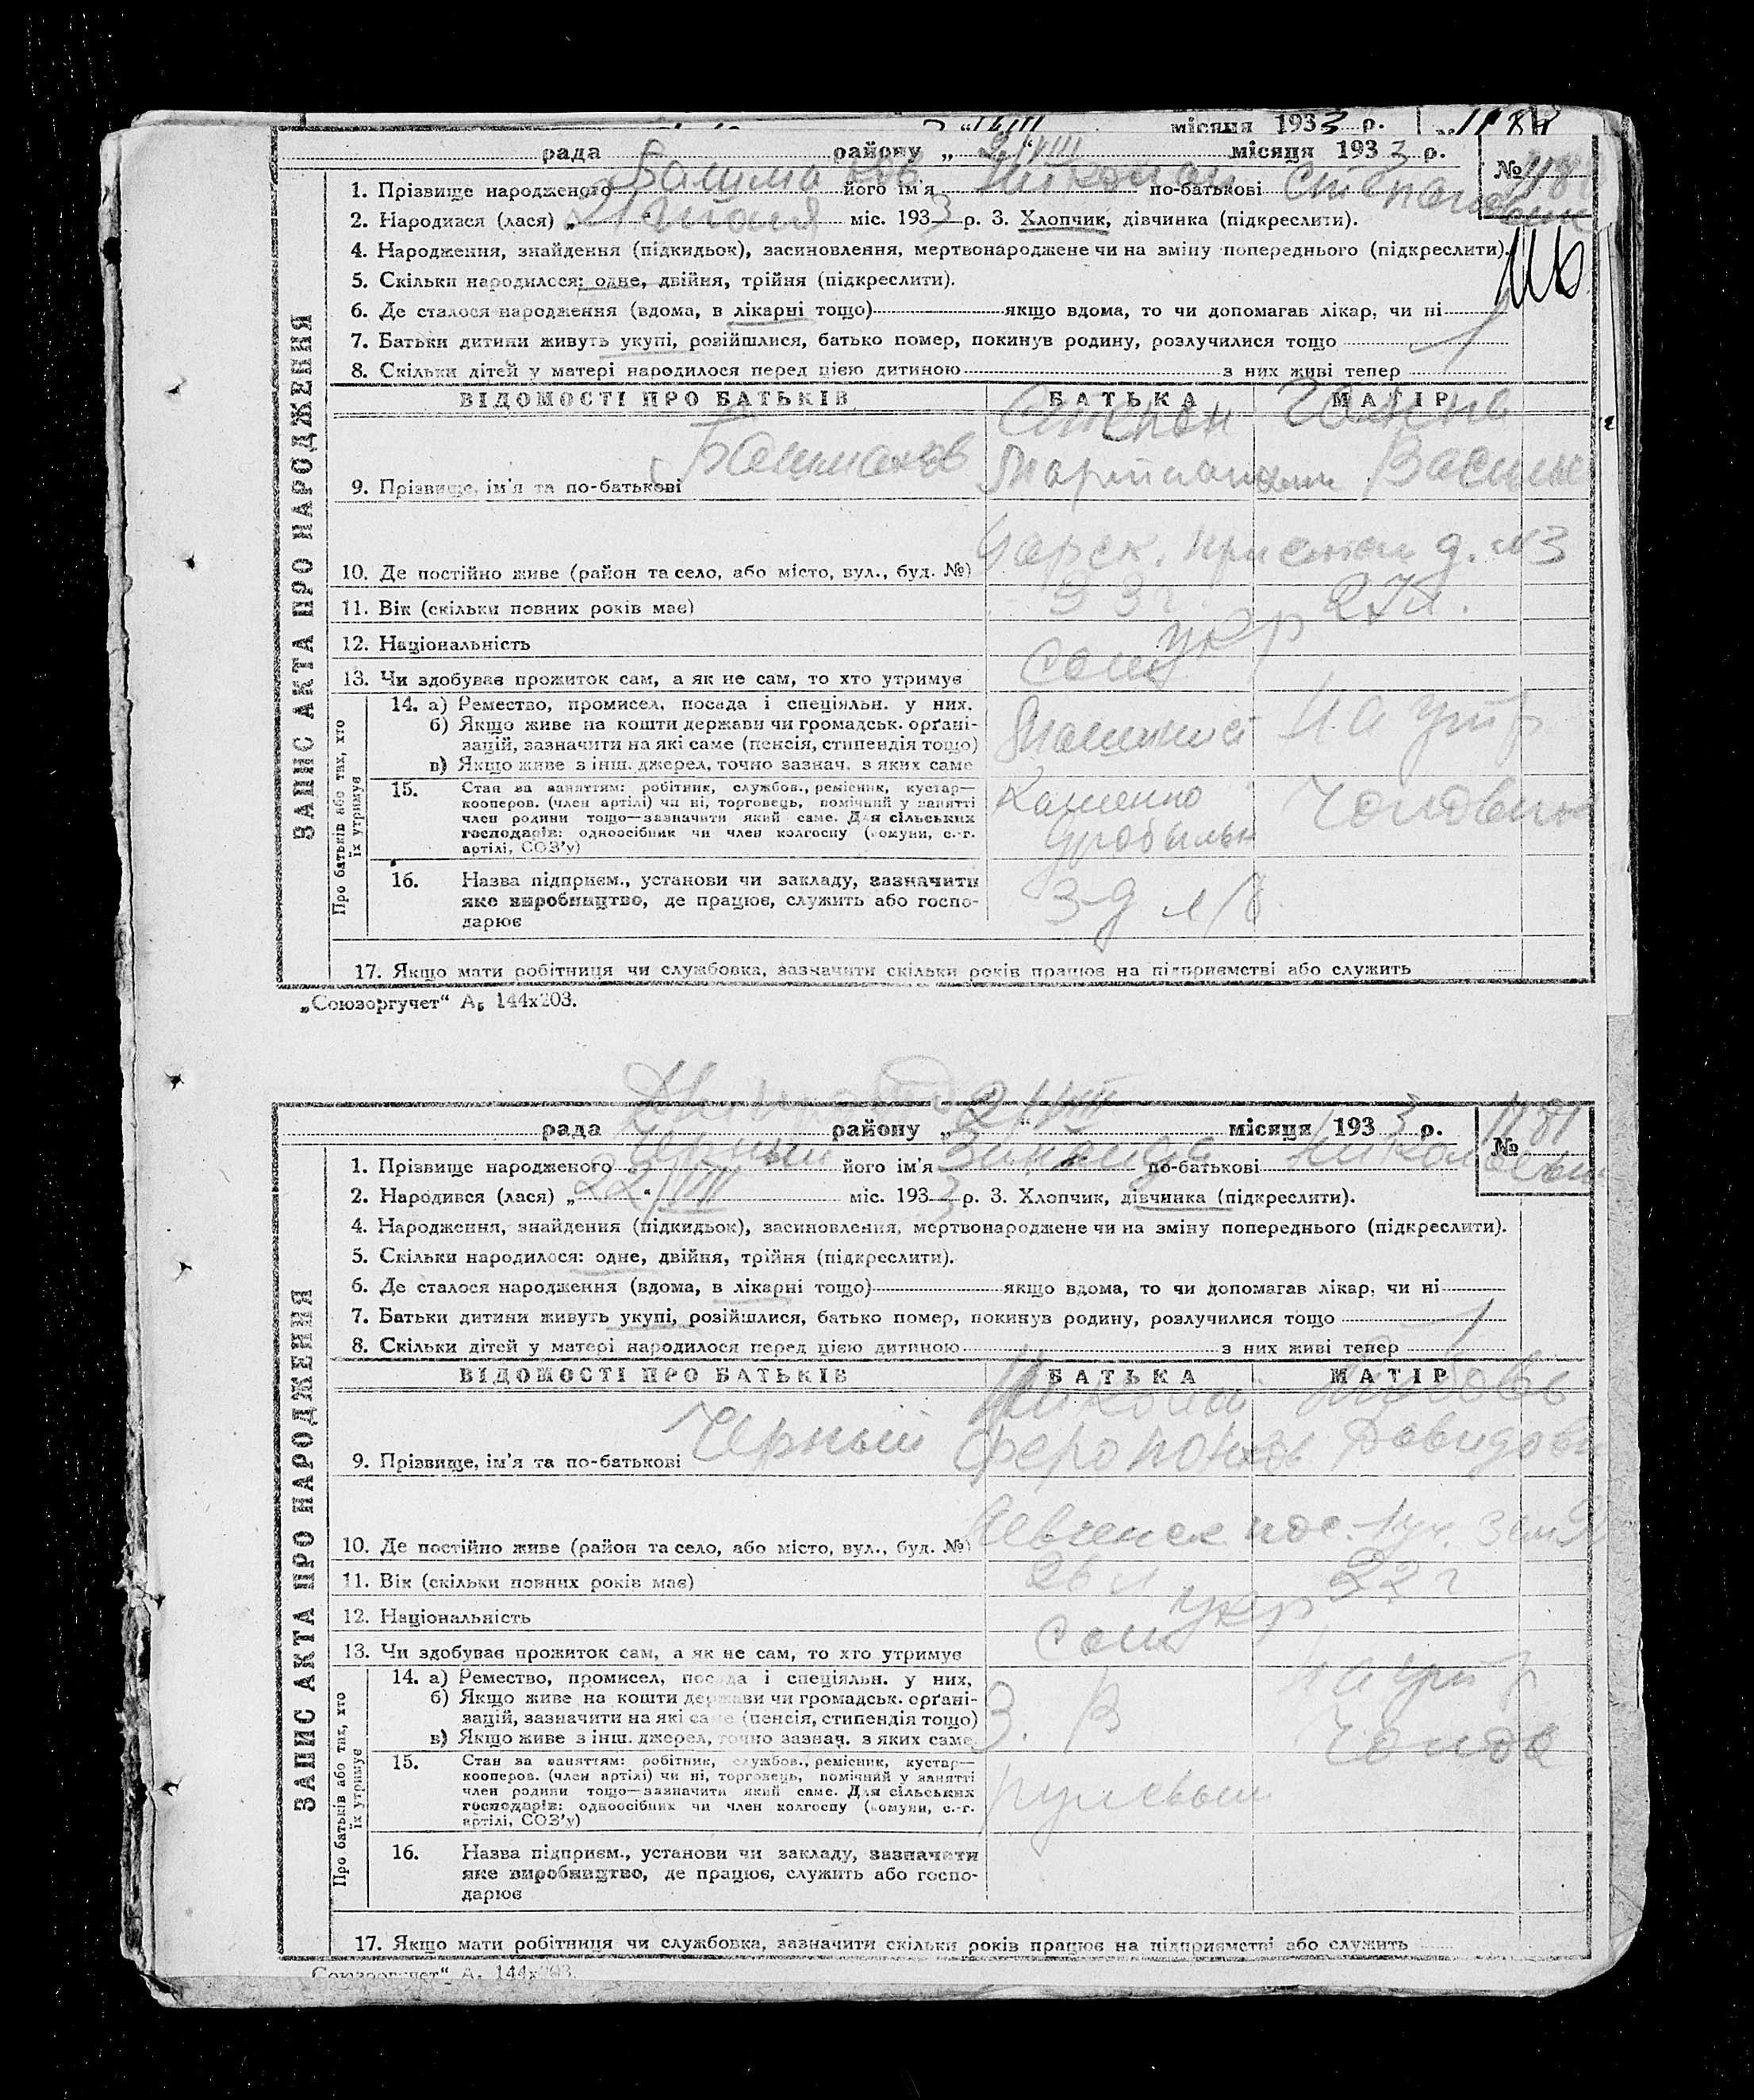 місяця 1933 р.
рада району „2/VIII“ місяця 1933 р. №
1. Прізвище народженого Башмаков його ім'я Николай по-батькові Степанович
2. Народився (лася) „21 июля міс. 1933 р. 3. Хлопчик, дівчинка (підкреслити).
4. Народження, знайдення (підкидьок), засиновлення, мертвонароджене чи на зміну попереднього (підкреслити).
5. Скільки народилося: одне, двійня, трійня (підкреслити).
6. Де сталося народження (вдома, в лікарні тощо) якщо вдома, то чи допомагав лікар, чи ні
7. Батьки дитини живуть укупі, розійшлися, батько помер, покинув родину, розлучилися тощо
8. Скільки дітей у матері народилося перед цією дитиною з них живі тепер 1
ЗАПИС АКТА ПРО НАРОДЖЕННЯ
ВІДОМОСТІ ПРО БАТЬКІВ БАТЬКА МАТІР
Степан
Башмаков
9. Прізвище, ім'я та по-батькові
10. Де постійно живе (район та село, або місто, вул., буд. №) д. №3
11. Вік (скільки повних років має) 33 г. 27 л.
12. Національність укр
13. Чи здобуває прожиток сам, а як не сам, то хто утримує сам
Про батьків або тих, хто їх утримує
14. а) Ремество, промисел, посада і спеціяльн. у них. На утр
б) Якщо живе на кошти держави чи громадськ. орґані-
зацій, зазначити на які саме (пенсія, стипендія тощо)
в) Якщо живе з інш. джерел, точно зазнач. з яких саме
15. Стан за заняттям: робітник, службов., ремісник, кустар—
кооперов. (член артілі) чи ні, торговець, помічний у занятті
член родини тощо—зазначити який саме. Для сільських
господарів: одноосібник чи член колгоспу (комуни, с.-г.
артілі, СОЗ'у)
16. Назва підприєм., установи чи закладу, зазначити
яке виробництво, де працює, служить або госпо-
дарює
17. Якщо мати робітниця чи службовка, зазначити скільки років працює на підприємстві або служить
„Союзоргучет“ А₅ 144х203.
рада району „2/VIII“ місяця 1933 р. № 1181
1. Прізвище народженого Черный його ім'я Зинаида по-батькові Николаевна
2. Народився (лася) „22/VII“ міс. 1933 р. 3. Хлопчик, дівчинка (підкреслити).
4. Народження, знайдення (підкидьок), засиновлення, мертвонароджене чи на зміну попереднього (підкреслити).
5. Скільки народилося: одне, двійня, трійня (підкреслити).
6. Де сталося народження (вдома, в лікарні тощо) якщо вдома, то чи допомагав лікар, чи ні
7. Батьки дитини живуть укупі, розійшлися, батько помер, покинув родину, розлучилися тощо
8. Скільки дітей у матері народилося перед цією дитиною з них живі тепер 1
ЗАПИС АКТА ПРО НАРОДЖЕННЯ
ВІДОМОСТІ ПРО БАТЬКІВ БАТЬКА МАТІР
Николай Любовь
Черный Давидовн
9. Прізвище, ім'я та по-батькові
10. Де постійно живе (район та село, або місто, вул., буд. №) пос.
11. Вік (скільки повних років має) 26 л 22 г
12. Національність укр
13. Чи здобуває прожиток сам, а як не сам, то хто утримує сам
Про батьків або тих, хто їх утримує
14. а) Ремество, промисел, посада і спеціяльн. у них. На утр
б) Якщо живе на кошти держави чи громадськ. орґані-
зацій, зазначити на які саме (пенсія, стипендія тощо)
в) Якщо живе з інш. джерел, точно зазнач. з яких саме
15. Стан за заняттям: робітник, службов., ремісник, кустар—
кооперов. (член артілі) чи ні, торговець, помічний у занятті
член родини тощо—зазначити який саме. Для сільських
господарів: одноосібник чи член колгоспу (комуни, с.-г.
артілі, СОЗ'у)
16. Назва підприєм., установи чи закладу, зазначити
яке виробництво, де працює, служить або госпо-
дарює
17. Якщо мати робітниця чи службовка, зазначити скільки років працює на підприємстві або служить
Союзоргучет“ А₅ 144х203.